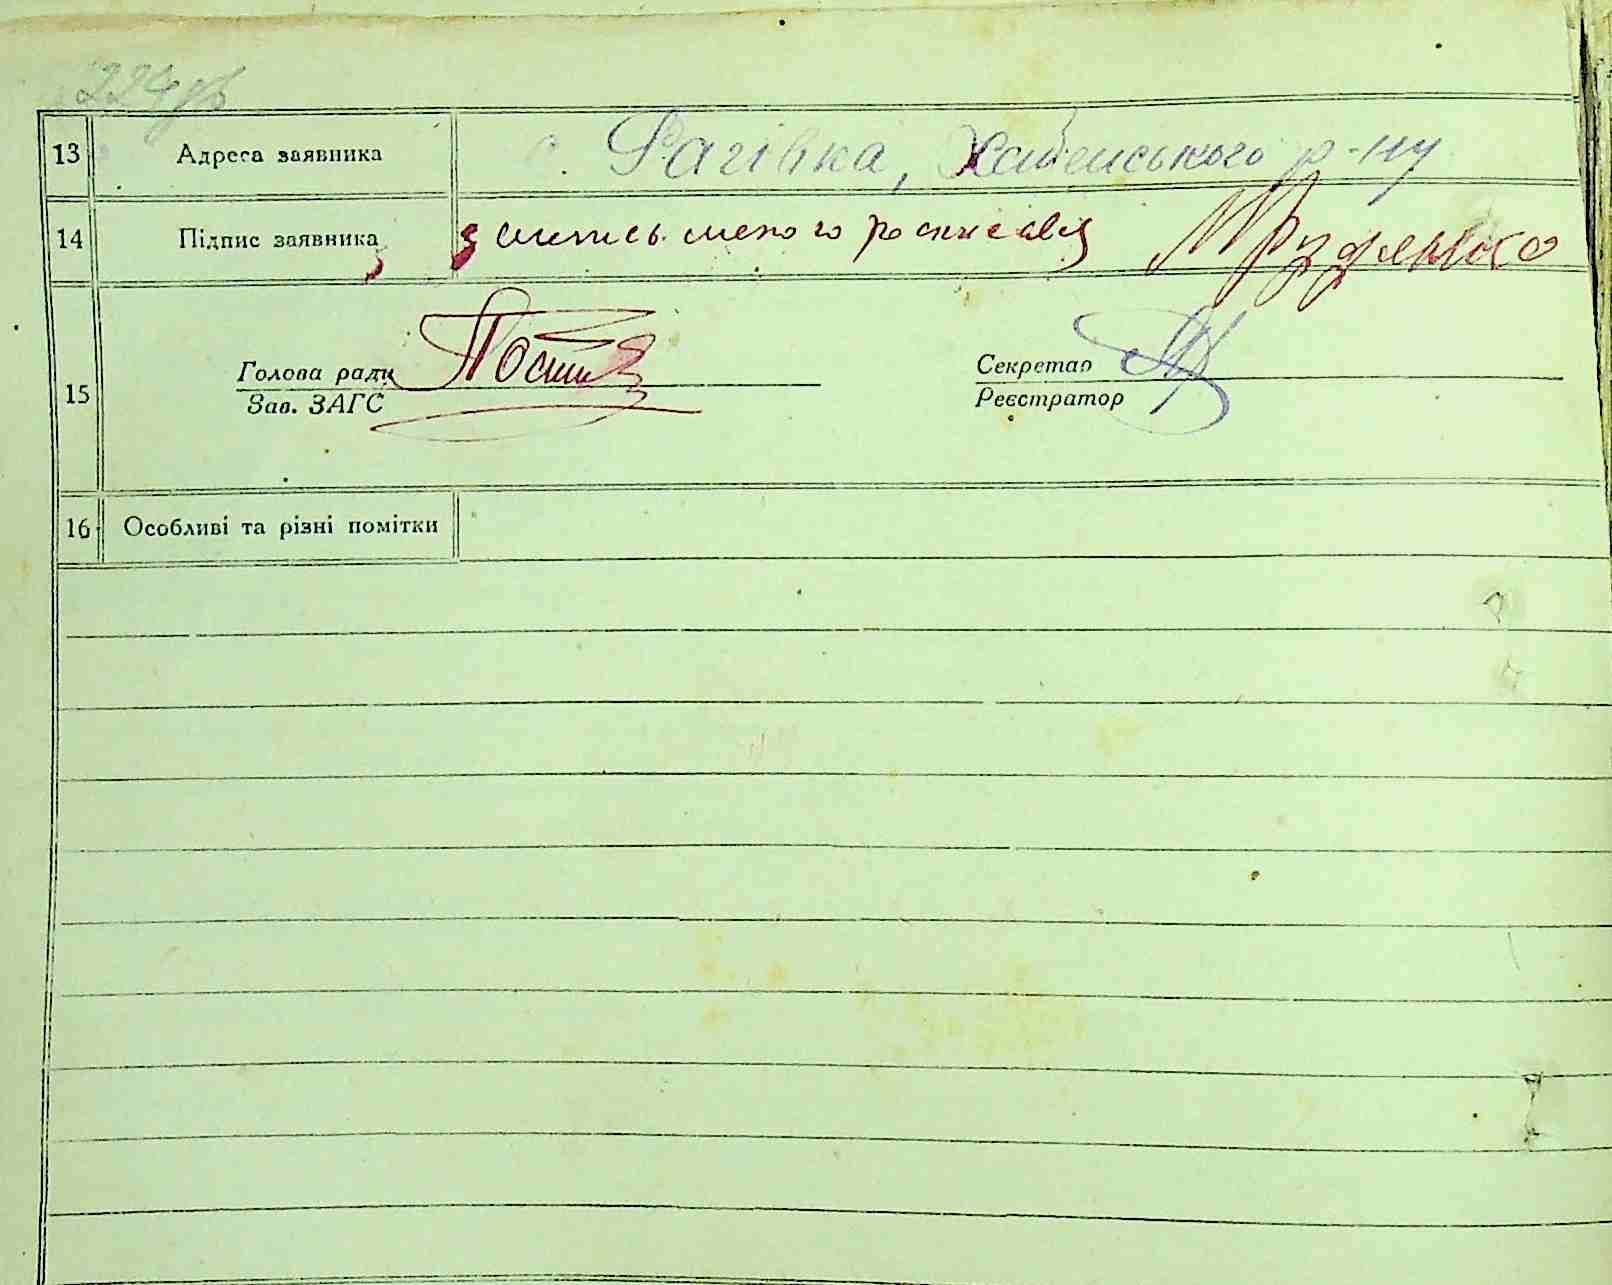 224зв
13 Адреса заявника с. Рагівка, Хабенського р-ну
14 Підпис заявника з неписьменого росписавсь Руденко
15 Голова ради Зав. ЗАГС
Секретар Реєстратор
16 Особливі та різні помітки